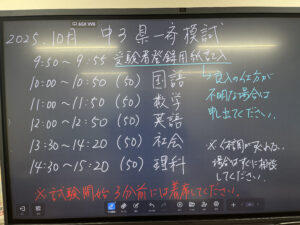 2025.10月 中3県一斉模試
9:50～9:55 受験者登録用紙記入
10:00～10:50 (50) 国語
11:00～11:50 (50) 数学
12:00～12:50 (50) 英語
13:30～14:20 (50) 社会
14:30～15:20 (50) 理科
記入の仕方が
不明な場合は
申し出てください。
場合はすぐに相談
してください。
※試験開始3分前には着席してください。